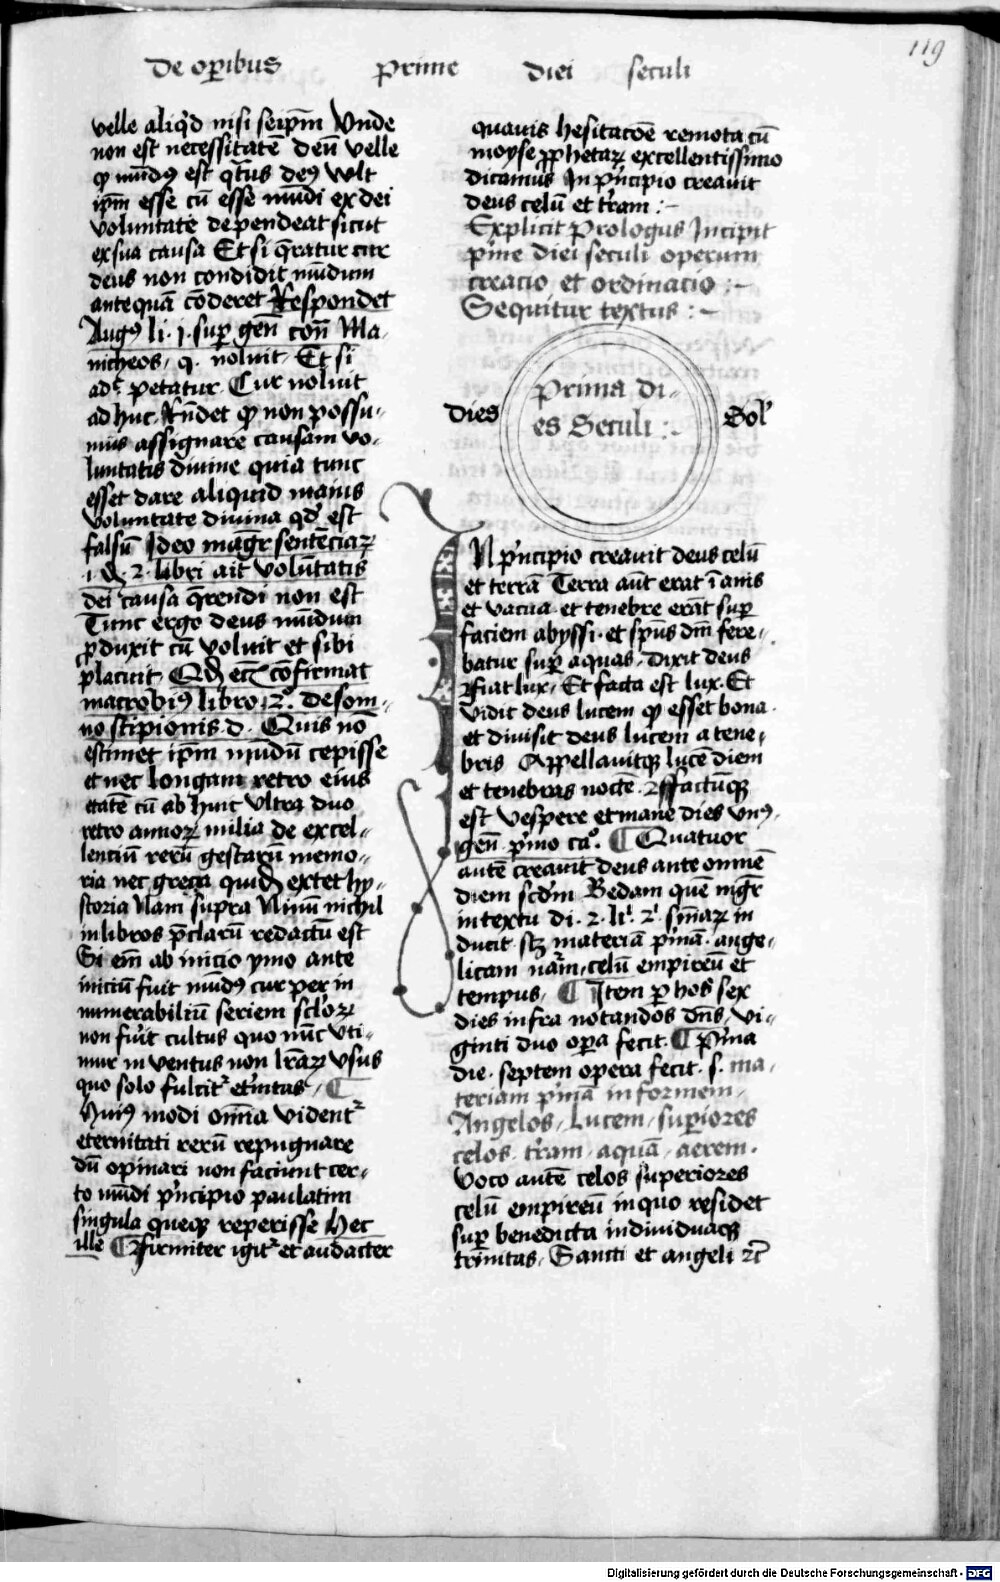 119
De op̄ibus prime diei seculi
velle aliq̄d nisi seip̄m Vnde
non est necessitatē deū velle
ꝙ mūdꝰ est q̄tus deꝰ wlt
ip̄m esse cū esse mūdi ex dei
voluntate dependeat sicut
ex sua causa Et si q̄ratur cur
deus non condidit mūdum
antequā cōderet Respondet
Augꝰ li. j. sup̄ gen̄ con̄ Ma-
nicheos, q. noluit, Et si
adc petatur Cur noluit
ad huc, Rn̄det ꝙ non possu-
mus assignare causam vo-
luntatis diuine quia tunc
esset dare aliquid maius
voluntate diuina qd̓ est
falsū Ideo magr̄ sentēciaꝝ
.i. d. 2. libri ait volūtatis
dei causa q̄rendi non est
Tunc ergo deus mūdum
ꝓduxit cū voluit et sibi
placuit Qd̓ eciā cōfirmat
macrobiꝰ libro .2o. de som-
no scipionis .d. Quis nō
estimet ip̄m mūdū cepisse
et nec longam retro eius
etatē cū ab huic vltra duo
retro annoꝝ milia de excel-
lenciū rerū gestarū memo-
ria nec greca quid̓ extet hy-
storia Nam supra Ninū nichil
in libros p̄clarū redactū est
Si em̄ ab inicio ymo ante
iniciū fuit mūdꝰ cur per in
numerabiliū seriem sc̄loꝝ
non fūit cultus quo nūc vti-
mur inuentus non lr̄aꝝ vsus
quo solo fulcitr et̄nitas, ¶
Huiꝰ modi om̄ia videntr
eternitati rerū repugnare
dū opinari non faciunt cer-
to mūdi p̄ncipio paulatim
singula queqꝫ reperisse Hec
ille ¶ Firmiter igitr et audacter
quauis hesitacōe remota cū
moyse ꝓphetaꝝ excellentissimo
dicamus In p̄ncipio creauit
deus celū et tr̄am :-
Explicit Prologus Incipit
p̄me diei seculi operum
creacio et ordinacio :-
Sequitur textus :-
dies Prima di- Sol'
es Seculi :-
IN p̄ncipio creauit deus celū
et terrā Terra aūt erat īanis
et vacua et tenebre erāt sup̄
faciem abyssi. et sp̄us dn̄i fere-
batur sup̄ aquas. Dixit deus
Fiat lux, Et facta est lux. Et
vidit deus lucem ꝙ esset bona.
et diuisit deus lucem a tene-
bris Appellauitqꝫ lucē diem
et tenebras noctē. Factūqꝫ
est vespere et mane dies vnꝰ.
gen̄. p̄mo ca̓o. ¶ Quatuor
autē creauit deus ante omnē
diem scd̄m Bedam quē mgr̄
in textu di. 2. li. 2. sn̄iaꝝ in
ducit. scꝫ materiā p̄mā. ange-
licam nām, celū empireū et
tempus, ¶ Item p hos sex
dies infra notandos dn̄s, vi-
ginti duo op̄a fecit. ¶ P̄ma
die. septem opera fecit. s. ma-
teriam p̄mā informem,
Angelos, Lucem, sup̄iores
celos. tr̄am, aquā, aerem.
voco autē celos superiores
celū empireū in quo residet
sup̄ benedicta indiuiduaqꝫ
trinitas, Sancti et angeli ⁊c̄
Digitalisierung gefördert durch die Deutsche Forschungsgemeinschaft - DFG